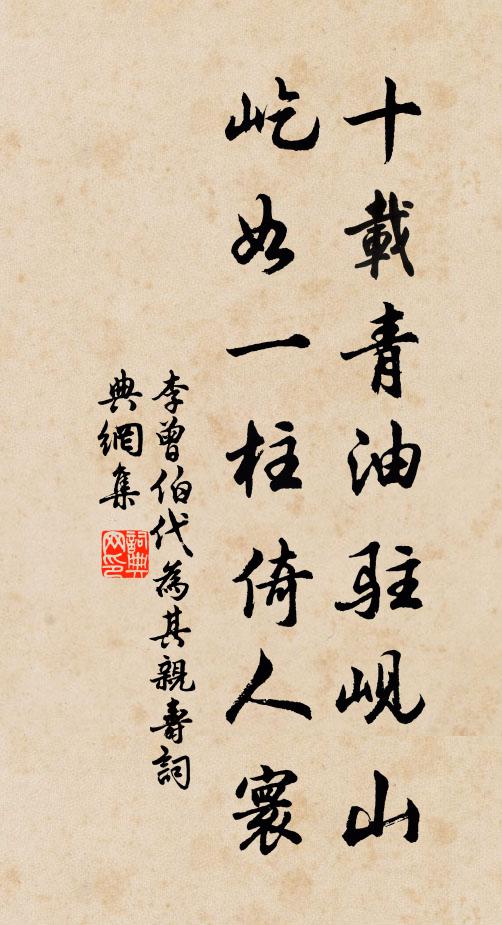 十載青油駐峴山
屹如一柱倚人寰
李曾伯代為其親壽詞
典網集
詞典网印